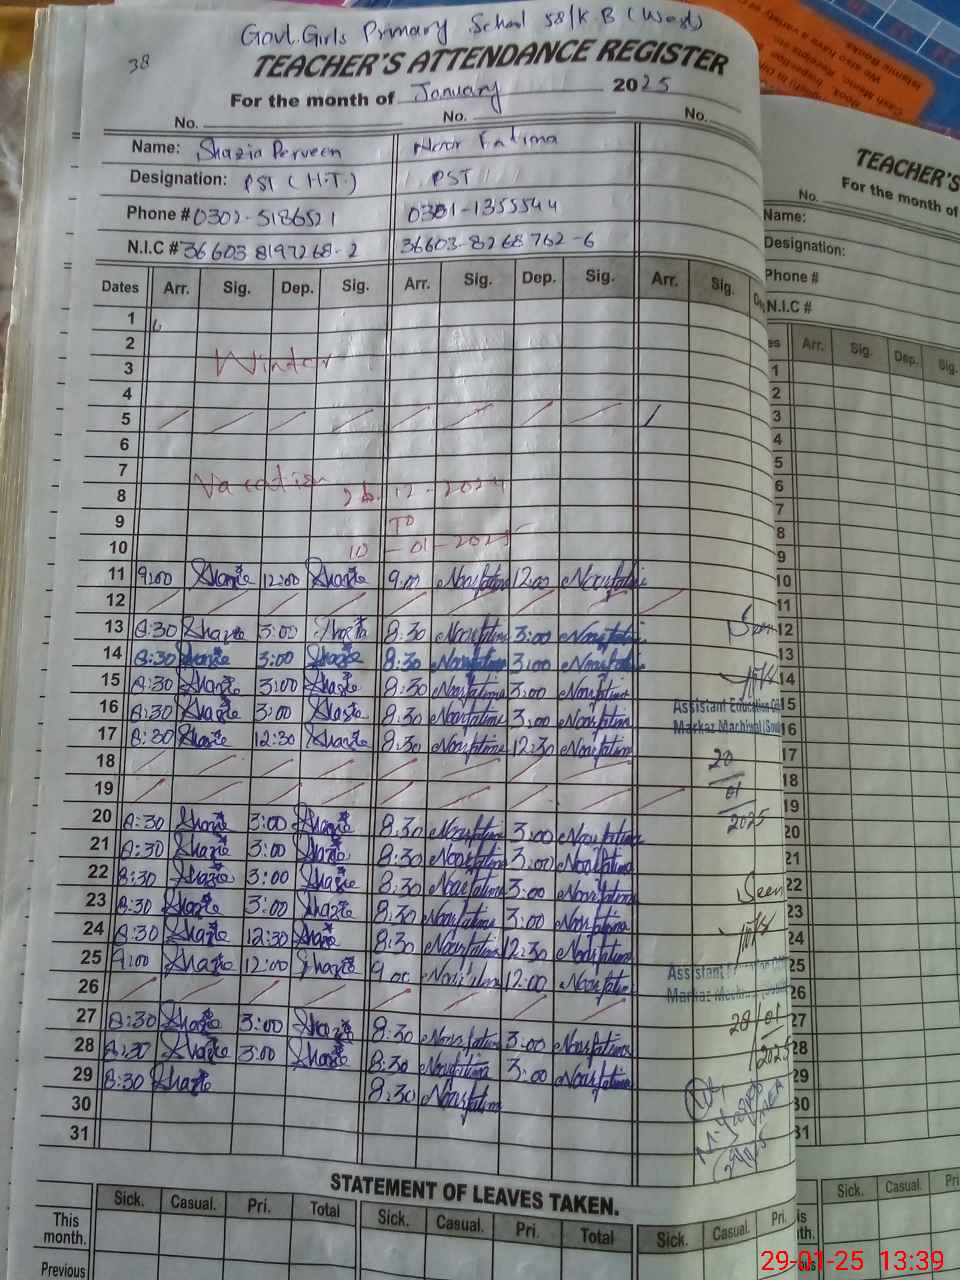 Govt. Girls Primary School 58/K.B (West)
38
TEACHER'S ATTENDANCE REGISTER
For the month of January 2025
No. No. No.
Name: Shazia Perveen Noor Fatima
Designation: PST (H.T.) PST
Phone # 0302-5186521 0301-1355544
N.I.C # 36603 8197268-2 36603-8268762-6
Dates Arr. Sig. Dep. Sig. Arr. Sig. Dep. Sig. Arr. Sig.
1
2
3 Winter
4
5
6
7
8 Vacation 26. 12-2024
9 TO
10 10 -01-2025
11 9:00 Shazia 12:00 Shazia 9:00 Noorfatima 12:00 Noorfatima
12
13 8:30 Shazia 3:00 Shazia 8:30 Noorfatima 3:00 Noorfatima
14 8:30 Shazia 3:00 Shazia 8:30 Noorfatima 3:00 Noorfatima
15 8:30 Shazia 3:00 Shazia 8:30 Noorfatima 3:00 Noorfatima
16 8:30 Shazia 3:00 Shazia 8:30 Noorfatima 3:00 Noorfatima
17 8:30 Shazia 12:30 Shazia 8:30 Noorfatima 12:30 Noorfatima
18
19
20 8:30 Shazia 3:00 Shazia 8:30 Noorfatima 3:00 Noorfatima
21 8:30 Shazia 3:00 Shazia 8:30 Noorfatima 3:00 Noorfatima
22 8:30 Shazia 3:00 Shazia 8:30 Noorfatima 3:00 Noorfatima
23 8:30 Shazia 3:00 Shazia 8:30 Noorfatima 3:00 Noorfatima
24 8:30 Shazia 12:30 Shazia 8:30 Noorfatima 12:30 Noorfatima
25 9:00 Shazia 12:00 Shazia 9:00 Noorfatima 12:00 Noorfatima
26
27 8:30 Shazia 3:00 Shazia 8:30 Noorfatima 3:00 Noorfatima
28 8:30 Shazia 3:00 Shazia 8:30 Noorfatima 3:00 Noorfatima
29 8:30 Shazia 8:30 Noorfatima
30
31
Seen
Assistant Education
Markaz Machiwal
20
01
2025
Seen
Assistant
Markaz
28/01
2025
STATEMENT OF LEAVES TAKEN.
Sick. Casual. Pri. Total Sick. Casual. Pri. Total Sick. Casual. Pri.
This month.
Previous
TEACHER'S
For the month of
No.
Name:
Designation:
Phone #
N.I.C #
Arr. Sig. Dep. Sig.
1
2
3
4
5
6
7
8
9
10
11
12
13
14
15
16
17
18
19
20
21
22
23
24
25
26
27
28
29
30
31
Sick. Casual. Pri
29-01-25 13:39